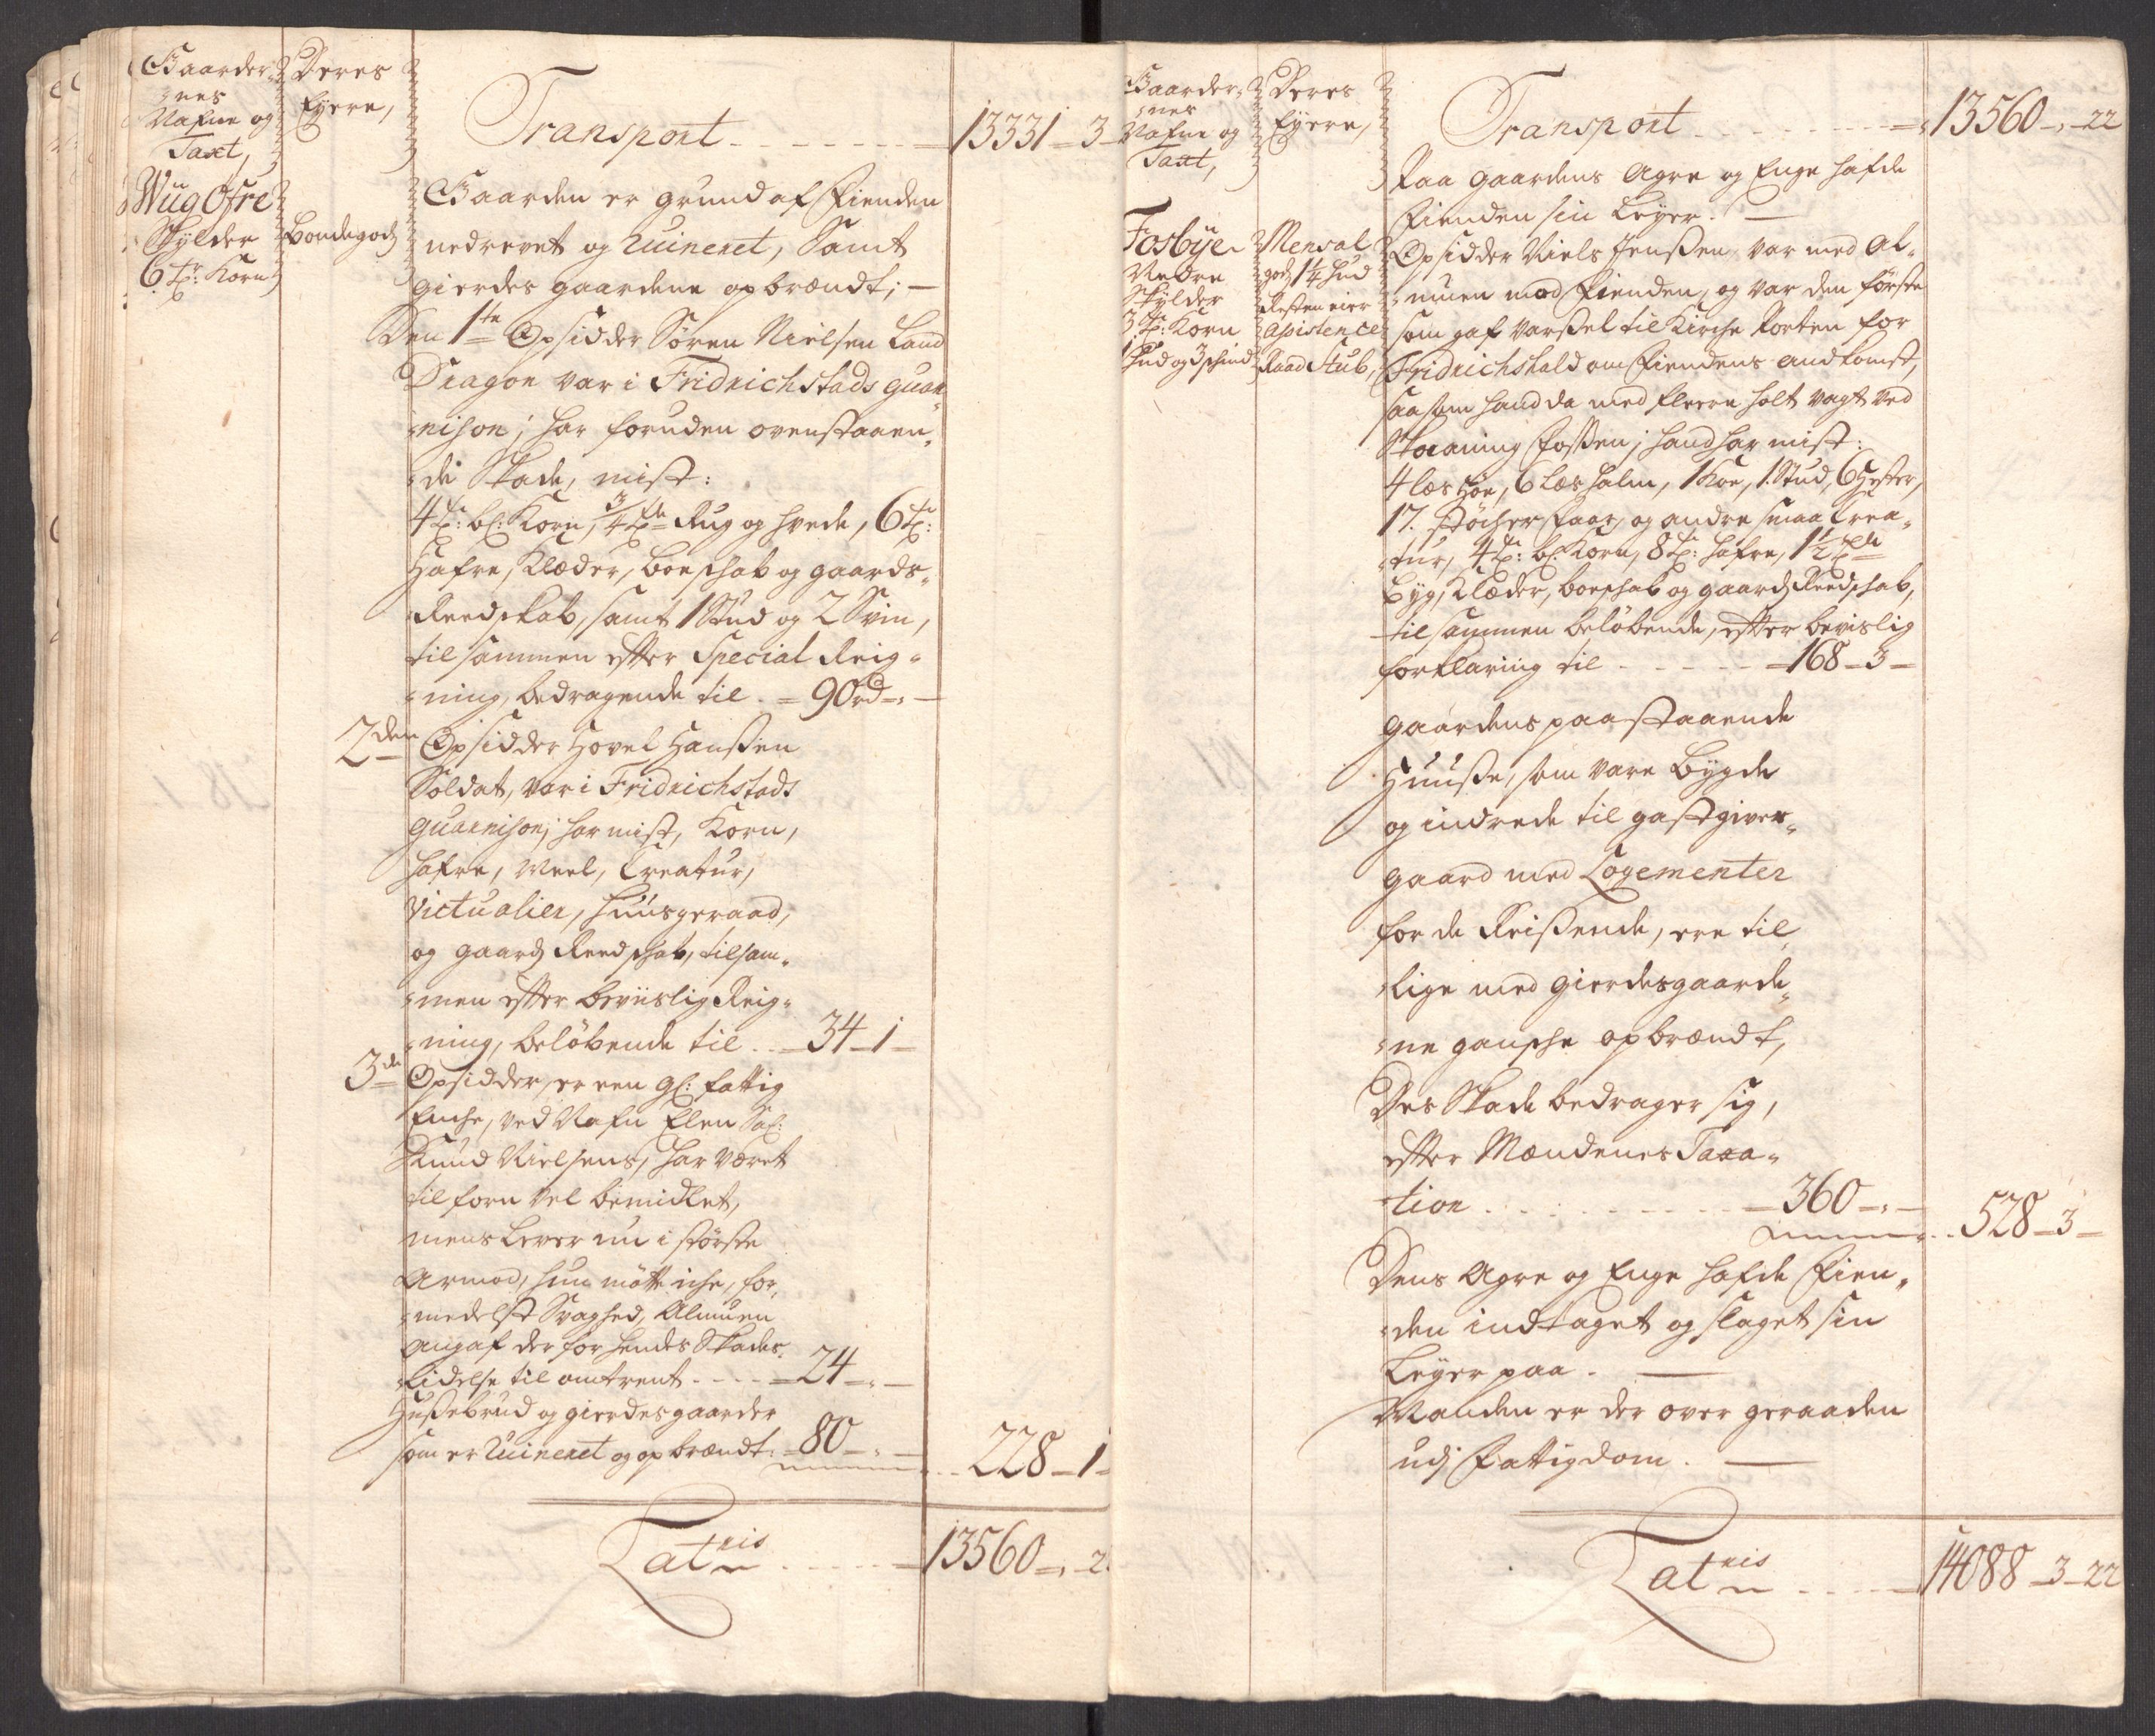 Gaarder-
nes
Nafne og
Taxt,
Deres
Eÿere,
Transport - - - - - - - 13331 - 3 -
Wüg Ofre
Skÿlder
6 tr: Korn
Bondegods
Gaarden er grund af Fienden
nedrevet og Ruineret, Samt
gierdes gaardene opbrændt; -
Den 1te Opsidder Søren Nielsen Land
Dragon var i Fridrichstads guar-
nison; har foruden ovenstaaen-
de Skade, mist:
4 tr: bl: Korn, 3/4 tde Rug og hvede, 6 tr:
Hafre, Klæder, boeschab og gaards-
Reedskab, samt 1 Stud og 2 Svin,
tilsammen efter Special Reig-
ning, bedragende til - 90 rd - " -
2den Opsidder Hovel Hanssen
Soldat, var i Fridrichstads
guarnison; har mist, Korn,
hafre, Meel, Creatur,
Victualier, huusgeraad,
og gaards Reedschab, tilsam-
men efter beviislig Reig-
ning, beløbende til - - 34 - 1 -
3de Opsidder, er een gl: fattig
Enche, ved Nafn Elen Sal:
Knud Nielsens, har været
tilforn vel bemidlet,
mens lever nu i største
Armod, hun møtte iche, for-
medelst Svaghed, Almuen
angaf der for hendes Skades
Lidelse til omtrent - - - - 24 - " -
Hussebrud og gierdesgaarder
som er Ruineret og opbrændt: - 80 - " -
228 - 1 -
Latris - - - - - 13560 - " - 2
Gaarder-
nes
Nafne og
Taxt,
Deres
Eÿere,
Transport - - - - - - - - 13560 - " - 22
Fosbÿe
Nedre
Skÿlder
3 tr: Korn
1 hud og 3 schind
Mensal
gods 1 1/4 hud
Resten eier
Assistence
Raad Stub,
Paa gaardens Agre og Enge hafde
Fienden sin Leÿer. -
Opsidder Niels Jenssen, var med Al-
muen mod Fienden, og var den første
som gaf varssel til Kirche Porten for
Fridrichshald om Fiendens Andkomst,
saasom hand da med fleere holt vagt ved
Skaaning Fossen; hand har mist:
4 læs Høe, 6 læs halm, 1 Koe, 1. Stud, 6 Hester,
17. støcher faar, og andre smaa Crea-
tur, 4 tr: bl: Korn, 8 tr: hafre, 1 1/2 tde
Bÿg, Klæder, boeschab og gaards Reedschab,
tilsammen beløbende, efter bevislig
forklaring til - - - - - - 168 - 3 -
gaardens paastaaende
Huusse, som vare Bÿgde
og indrede til gastgiver-
gaard med Logementer
for de Reissende, ere til-
lige med gierdesgaarde-
ne gansche opbrændt,
Des Skade bedrager sig,
efter Mændenes Taxa-
tion - - - - - - - - 360 - " -
528 - 3 -
Dens Agre og Enge hafde Fien-
den indtaget og slaget sin
Leÿer paa. -
Manden er der over geraaden
udj Fattigdom. -
Latris - - - - - 14088 - 3 - 22